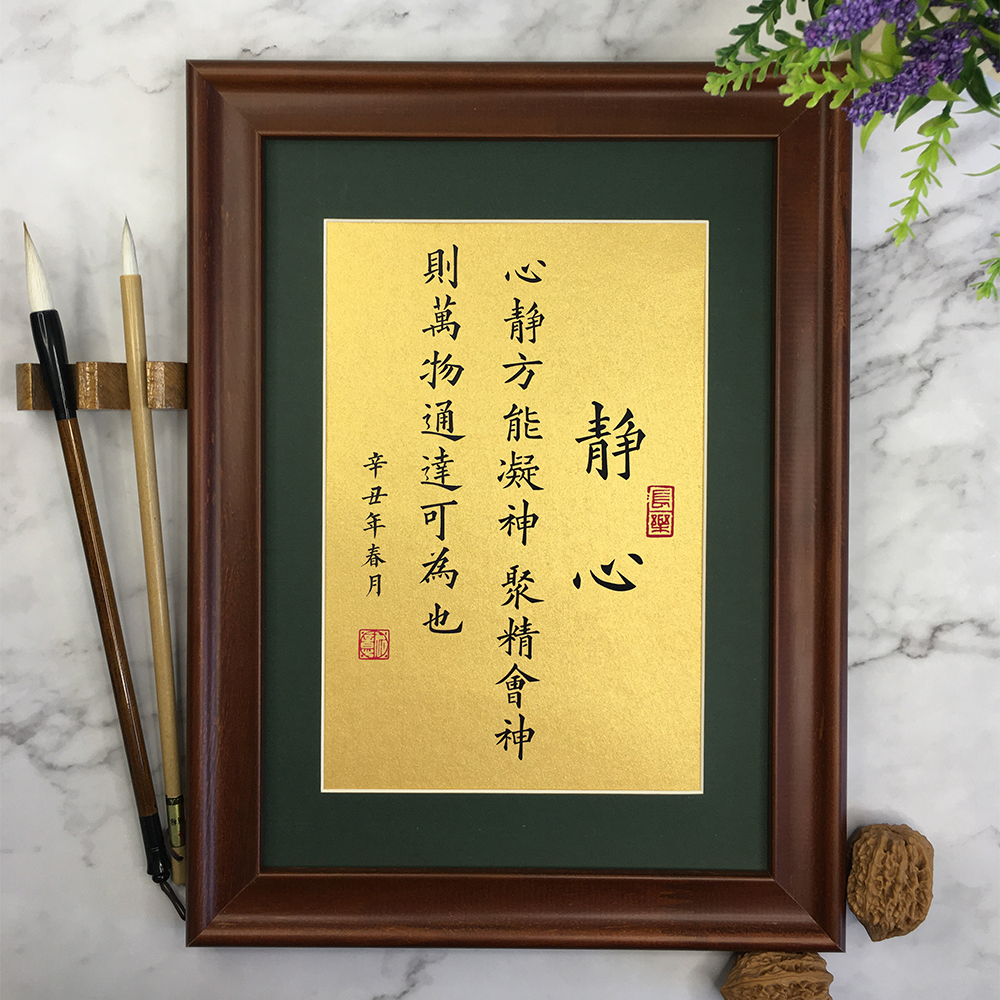 静心
長樂
心静方能凝神 聚精會神
則萬物通達可為也
辛丑年春月